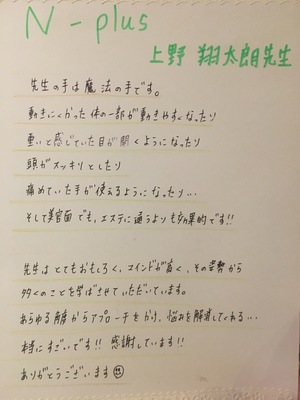 N-plus
上野 翔太朗先生
先生の手は魔法の手です。
動きにくかった体の一部が動きやすくなったり
重いと感じていた目が開くようになったり
頭がスッキリとしたり
痛めていた手が使えるようになったり…
そして美容面でも、エステに通うよりも効果的です!!
先生はとてもおもしろく、マインドが高く、その姿勢から
多くのことを学ばさせていただいています。
あらゆる角度からアプローチをかけ、悩みを解消してくれる…
本当にすごいです!! 感謝しています!!
ありがとうございます